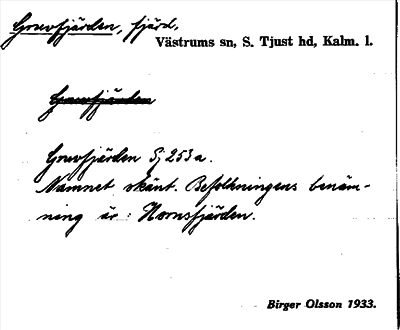 Grevfjärden, fjärd.
Västrums sn, S. Tjust hd, Kalm. l.
Grevfjärden
Grevfjärden Sj 253 a.
Namnet okänt. Befolkningens benäm-
ning är: Hornsfjärden.
Birger Olsson 1933.